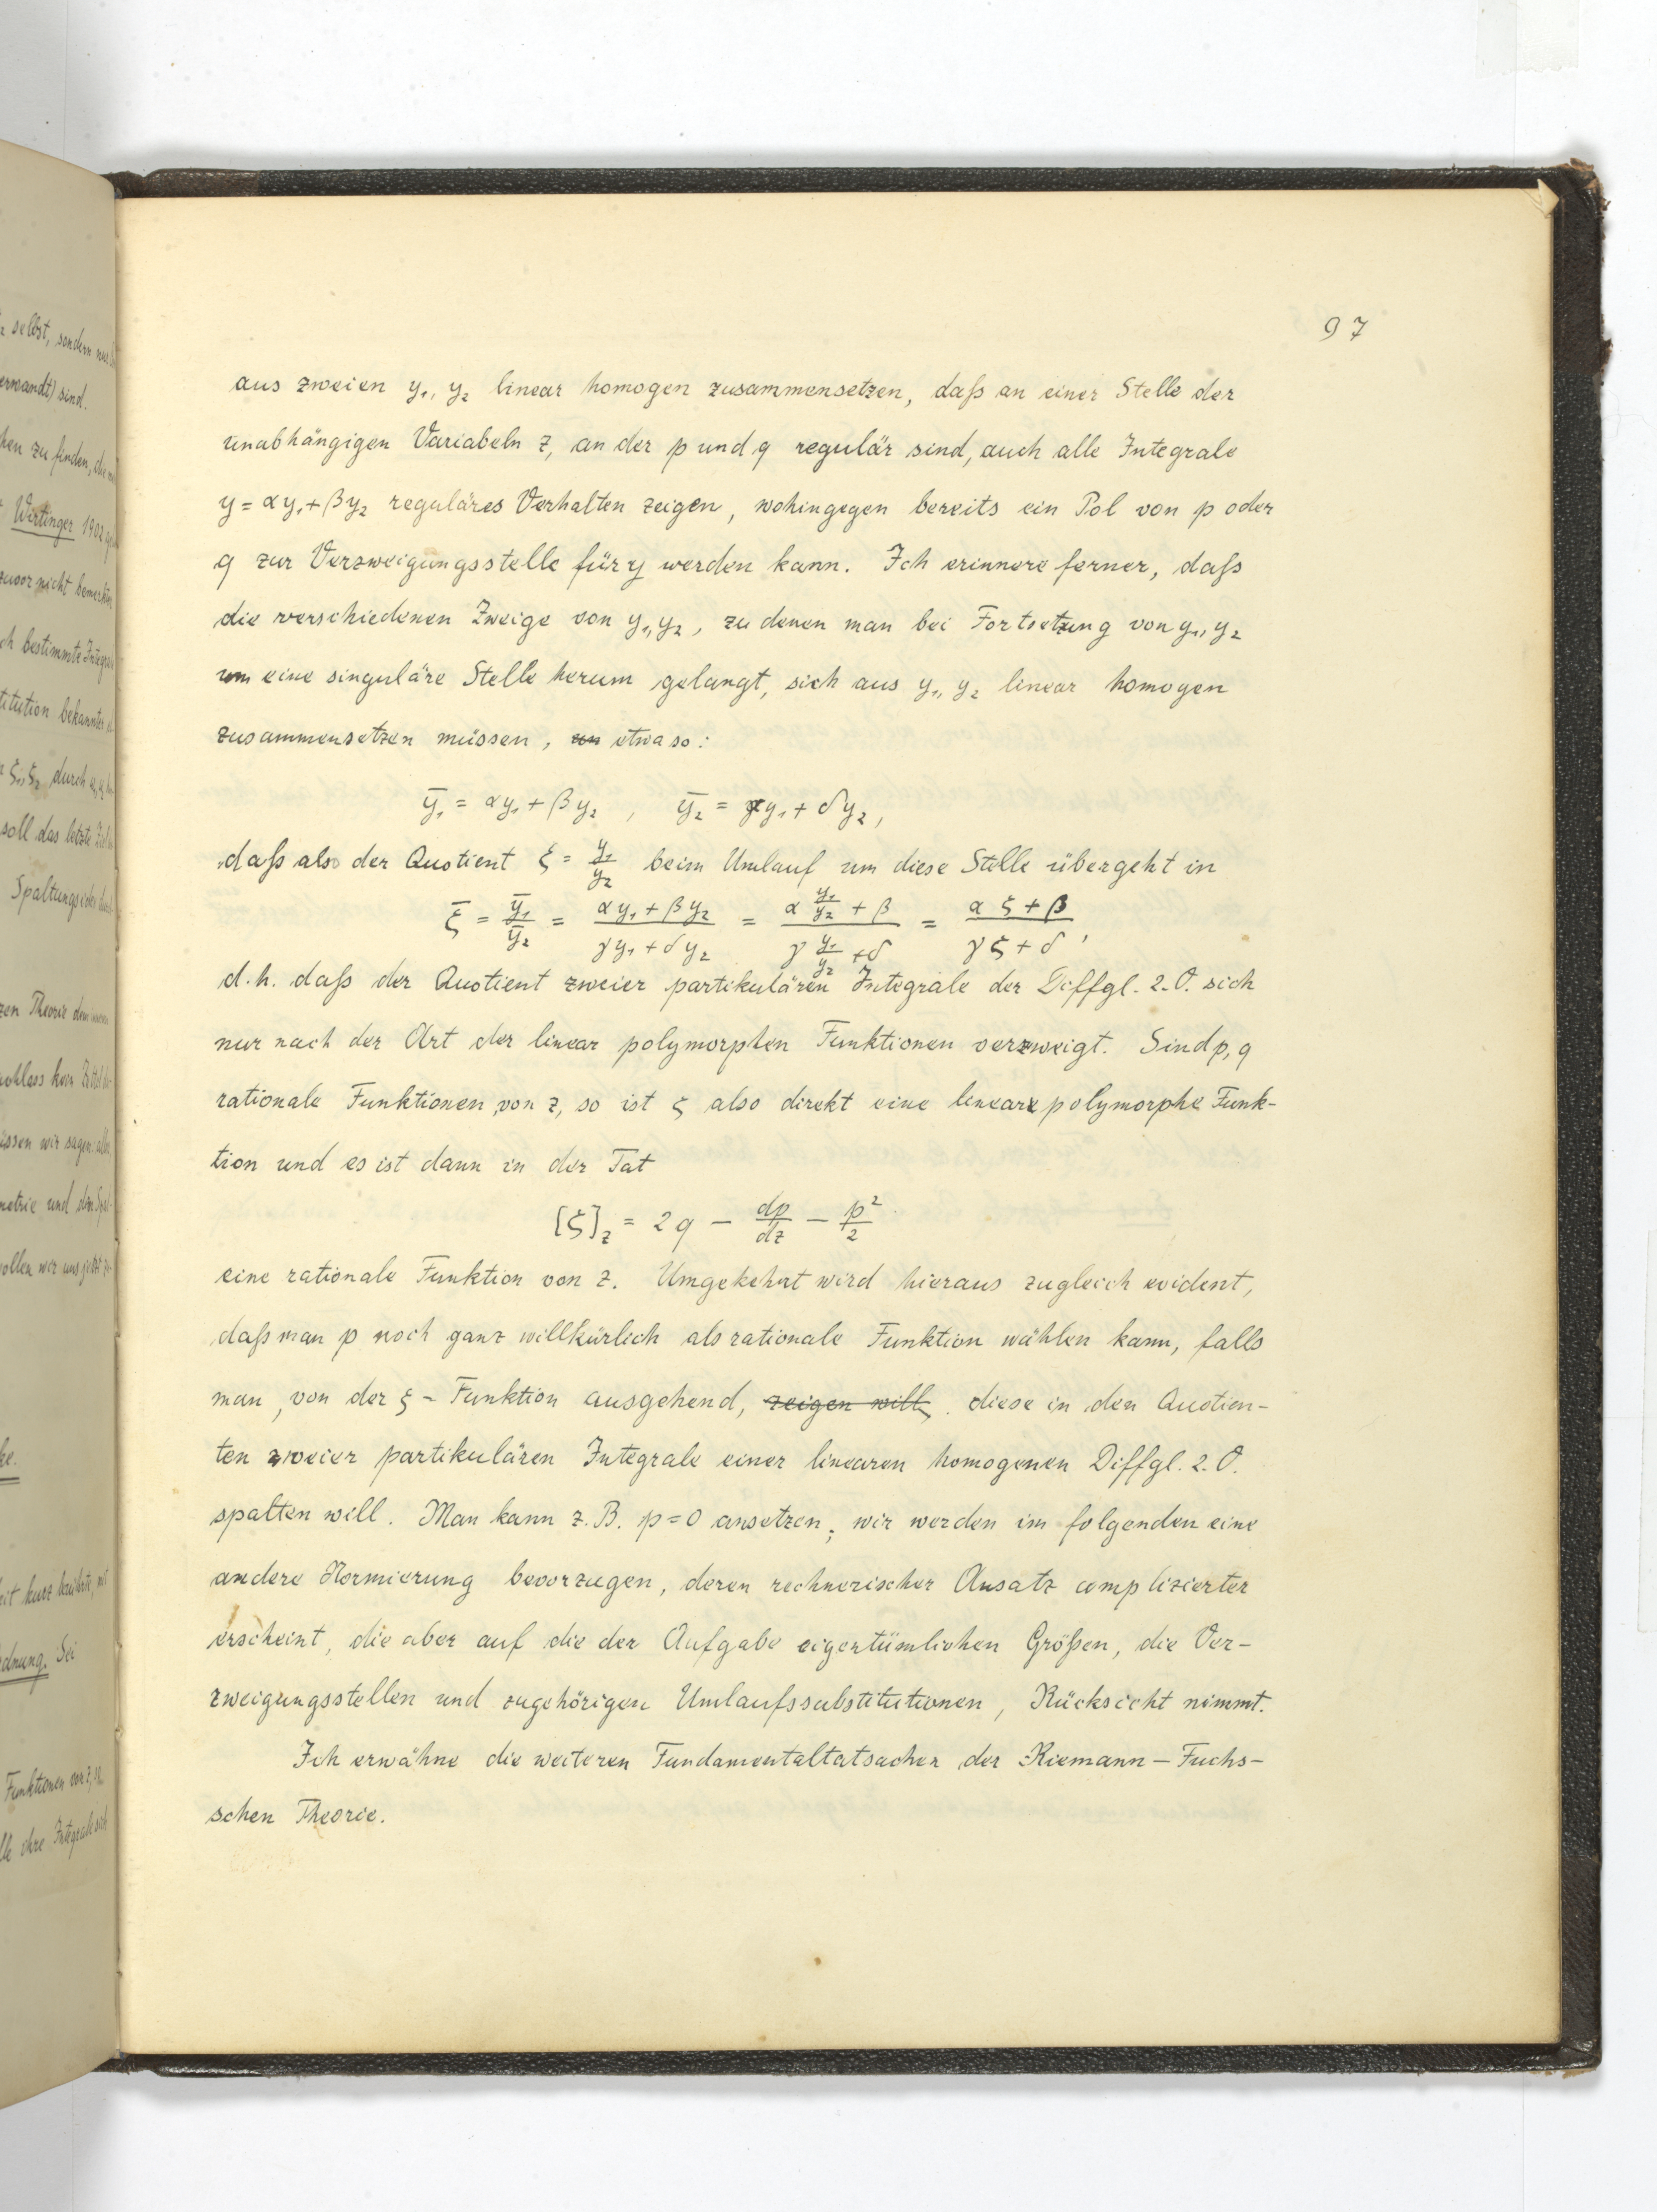 97
aus zweien y₁, y₂ linear homogen zusammensetzen, daß an einer Stelle der
unabhängigen Variabeln z, an der p und q regulär sind, auch alle Integrale
y = αy₁ + βy₂ reguläres Verhalten zeigen, wohingegen bereits ein Pol von p oder
q zur Verzweigungsstelle für y werden kann. Ich erinnere ferner, daß
die verschiedenen Zweige von y₁, y₂, zu denen man bei Fortsetzung von y₁, y₂
um eine singuläre Stelle herum gelangt, sich aus y₁, y₂ linear homogen
zusammensetzen müssen, un etwa so:
ȳ₁ = αy₁ + βy₂ , ȳ₂ = γy₁ + δy₂,
daß also der Quotient ξ = y₁/y₂ beim Umlauf um diese Stelle übergeht in
ξ̄ = ȳ₁/ȳ₂ = (αy₁ + βy₂)/(γy₁ + δy₂) = (α y₁/y₂ + β)/(γ y₁/y₂ + δ) = (αζ + β)/(γζ + δ),
d.h. daß der Quotient zweier partikulären Integrale der Diffgl. 2. O. sich
nur nach der Art der linear polymorphen Funktionen verzweigt. Sind p, q
rationale Funktionen von z, so ist ζ also direkt eine linear polymorphe Funk-
tion und es ist dann in der Tat
[ζ]_z = 2q − dp/dz − p²/2
eine rationale Funktion von z. Umgekehrt wird hieraus zugleich evident,
daß man p noch ganz willkürlich als rationale Funktion wählen kann, falls
man, von der ξ-Funktion ausgehend, zeigen will, diese in den Quotien-
ten zweier partikulären Integrale einer linearen homogenen Diffgl. 2. O.
spalten will. Man kann z.B. p=0 ansetzen; wir werden im folgenden eine
andere Normierung bevorzugen, deren rechnerischer Ansatz complizierter
erscheint, die aber auf die der Aufgabe eigentümlichen Größen, die Ver-
zweigungsstellen und zugehörigen Umlaufssubstitutionen, Rücksicht nimmt.
Ich erwähne die weiteren Fundamentaltatsachen der Riemann-Fuchs-
schen Theorie.